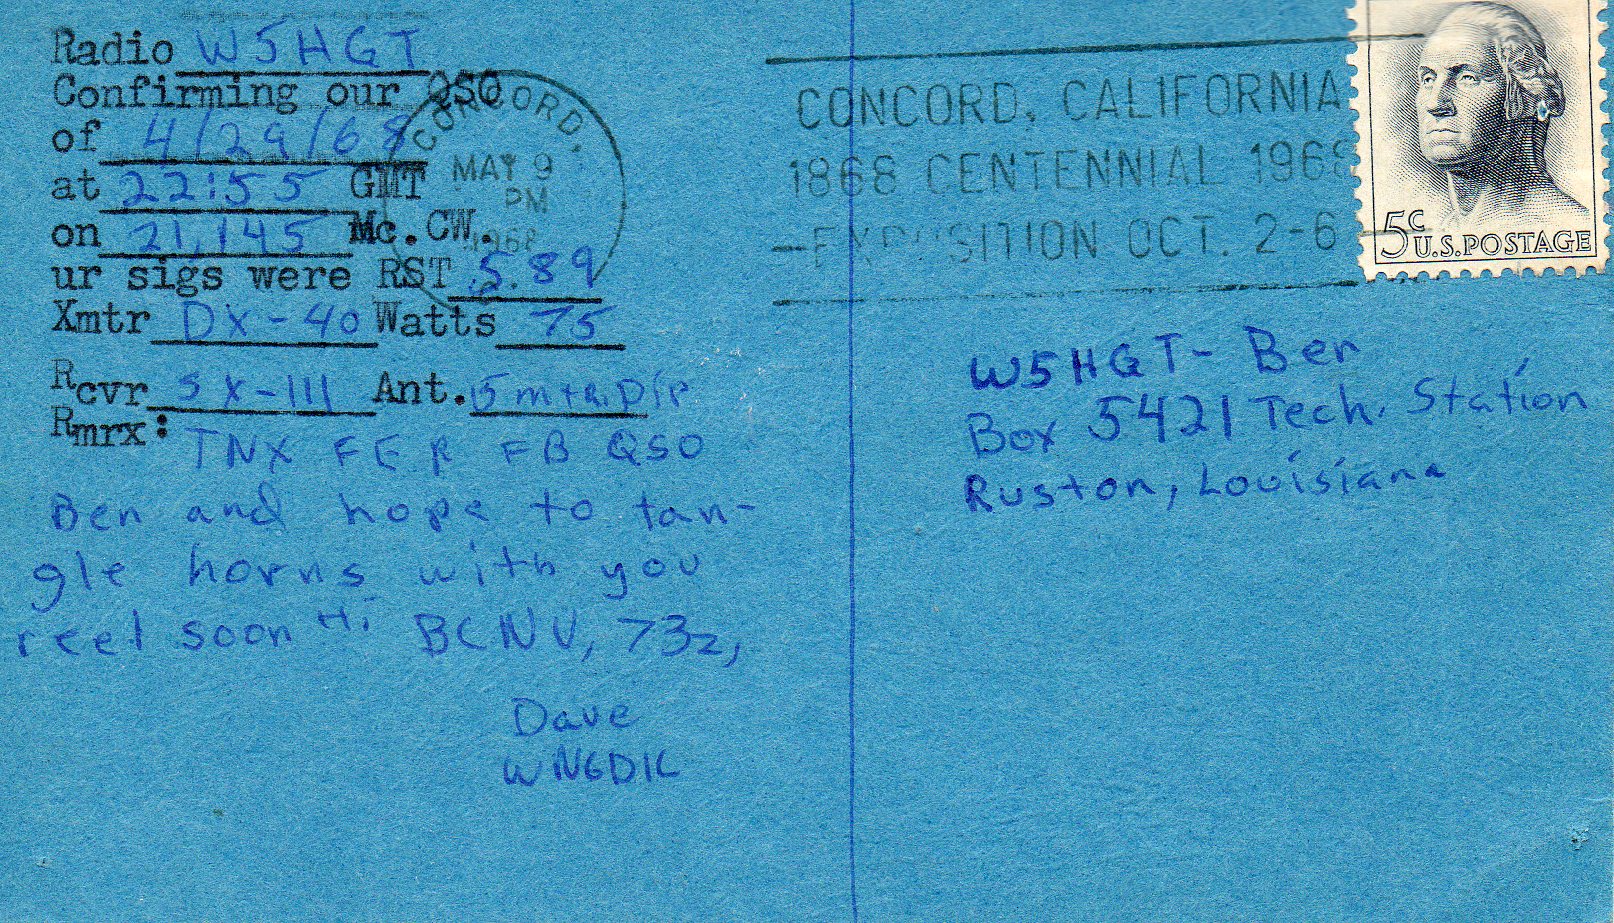 Radio W5HGT
Confirming our QSO
of 4/29/68
at 22:55 GMT
on 21,145 Mc.CW.
ur sigs were RST 5.89
Xmtr DX-40 Watts 75
Rcvr SX-111 Ant. 15 mtr. Dip
Rmrx: TNX FER FB QSO
Ben and hope to tan-
gle horns with you
reel soon Hi BCNU, 73z,
Dave
CONCORD,
MAY 9
PM
1968
CONCORD, CALIFORNIA
1868 CENTENNIAL 1968
EXPOSITION OCT. 2-6
5c U.S.POSTAGE
W5HGT- Ben
Box 5421 Tech. Station
Ruston, Louisiana